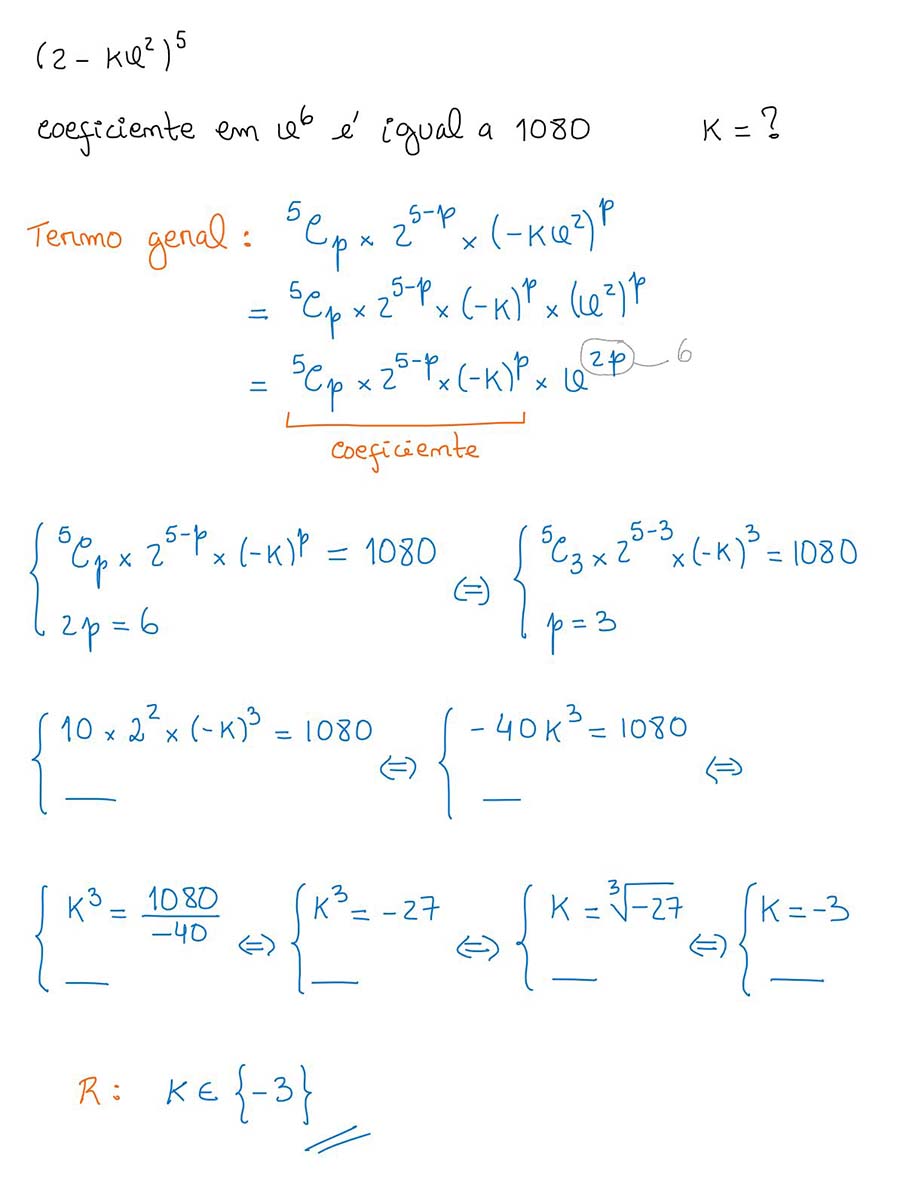 (2 - kx²)⁵
coeficiente em x⁶ é igual a 1080 K = ?
Termo geral: ⁵Cₚ × 2⁵⁻ᵖ × (-Kx²)ᵖ
= ⁵Cₚ × 2⁵⁻ᵖ × (-K)ᵖ × (x²)ᵖ
= ⁵Cₚ × 2⁵⁻ᵖ × (-K)ᵖ × x²ᵖ 6
coeficiente
{ ⁵Cₚ × 2⁵⁻ᵖ × (-K)ᵖ = 1080 ⇔ { ⁵C₃ × 2⁵⁻³ × (-K)³ = 1080
2p = 6 p = 3
{ 10 × 2² × (-K)³ = 1080 ⇔ { -40K³ = 1080 ⇔
__ __
{ K³ = 1080/-40 ⇔ { K³ = -27 ⇔ { K = ³√-27 ⇔ { K = -3
__ __ __ __
R: K ∈ {-3}